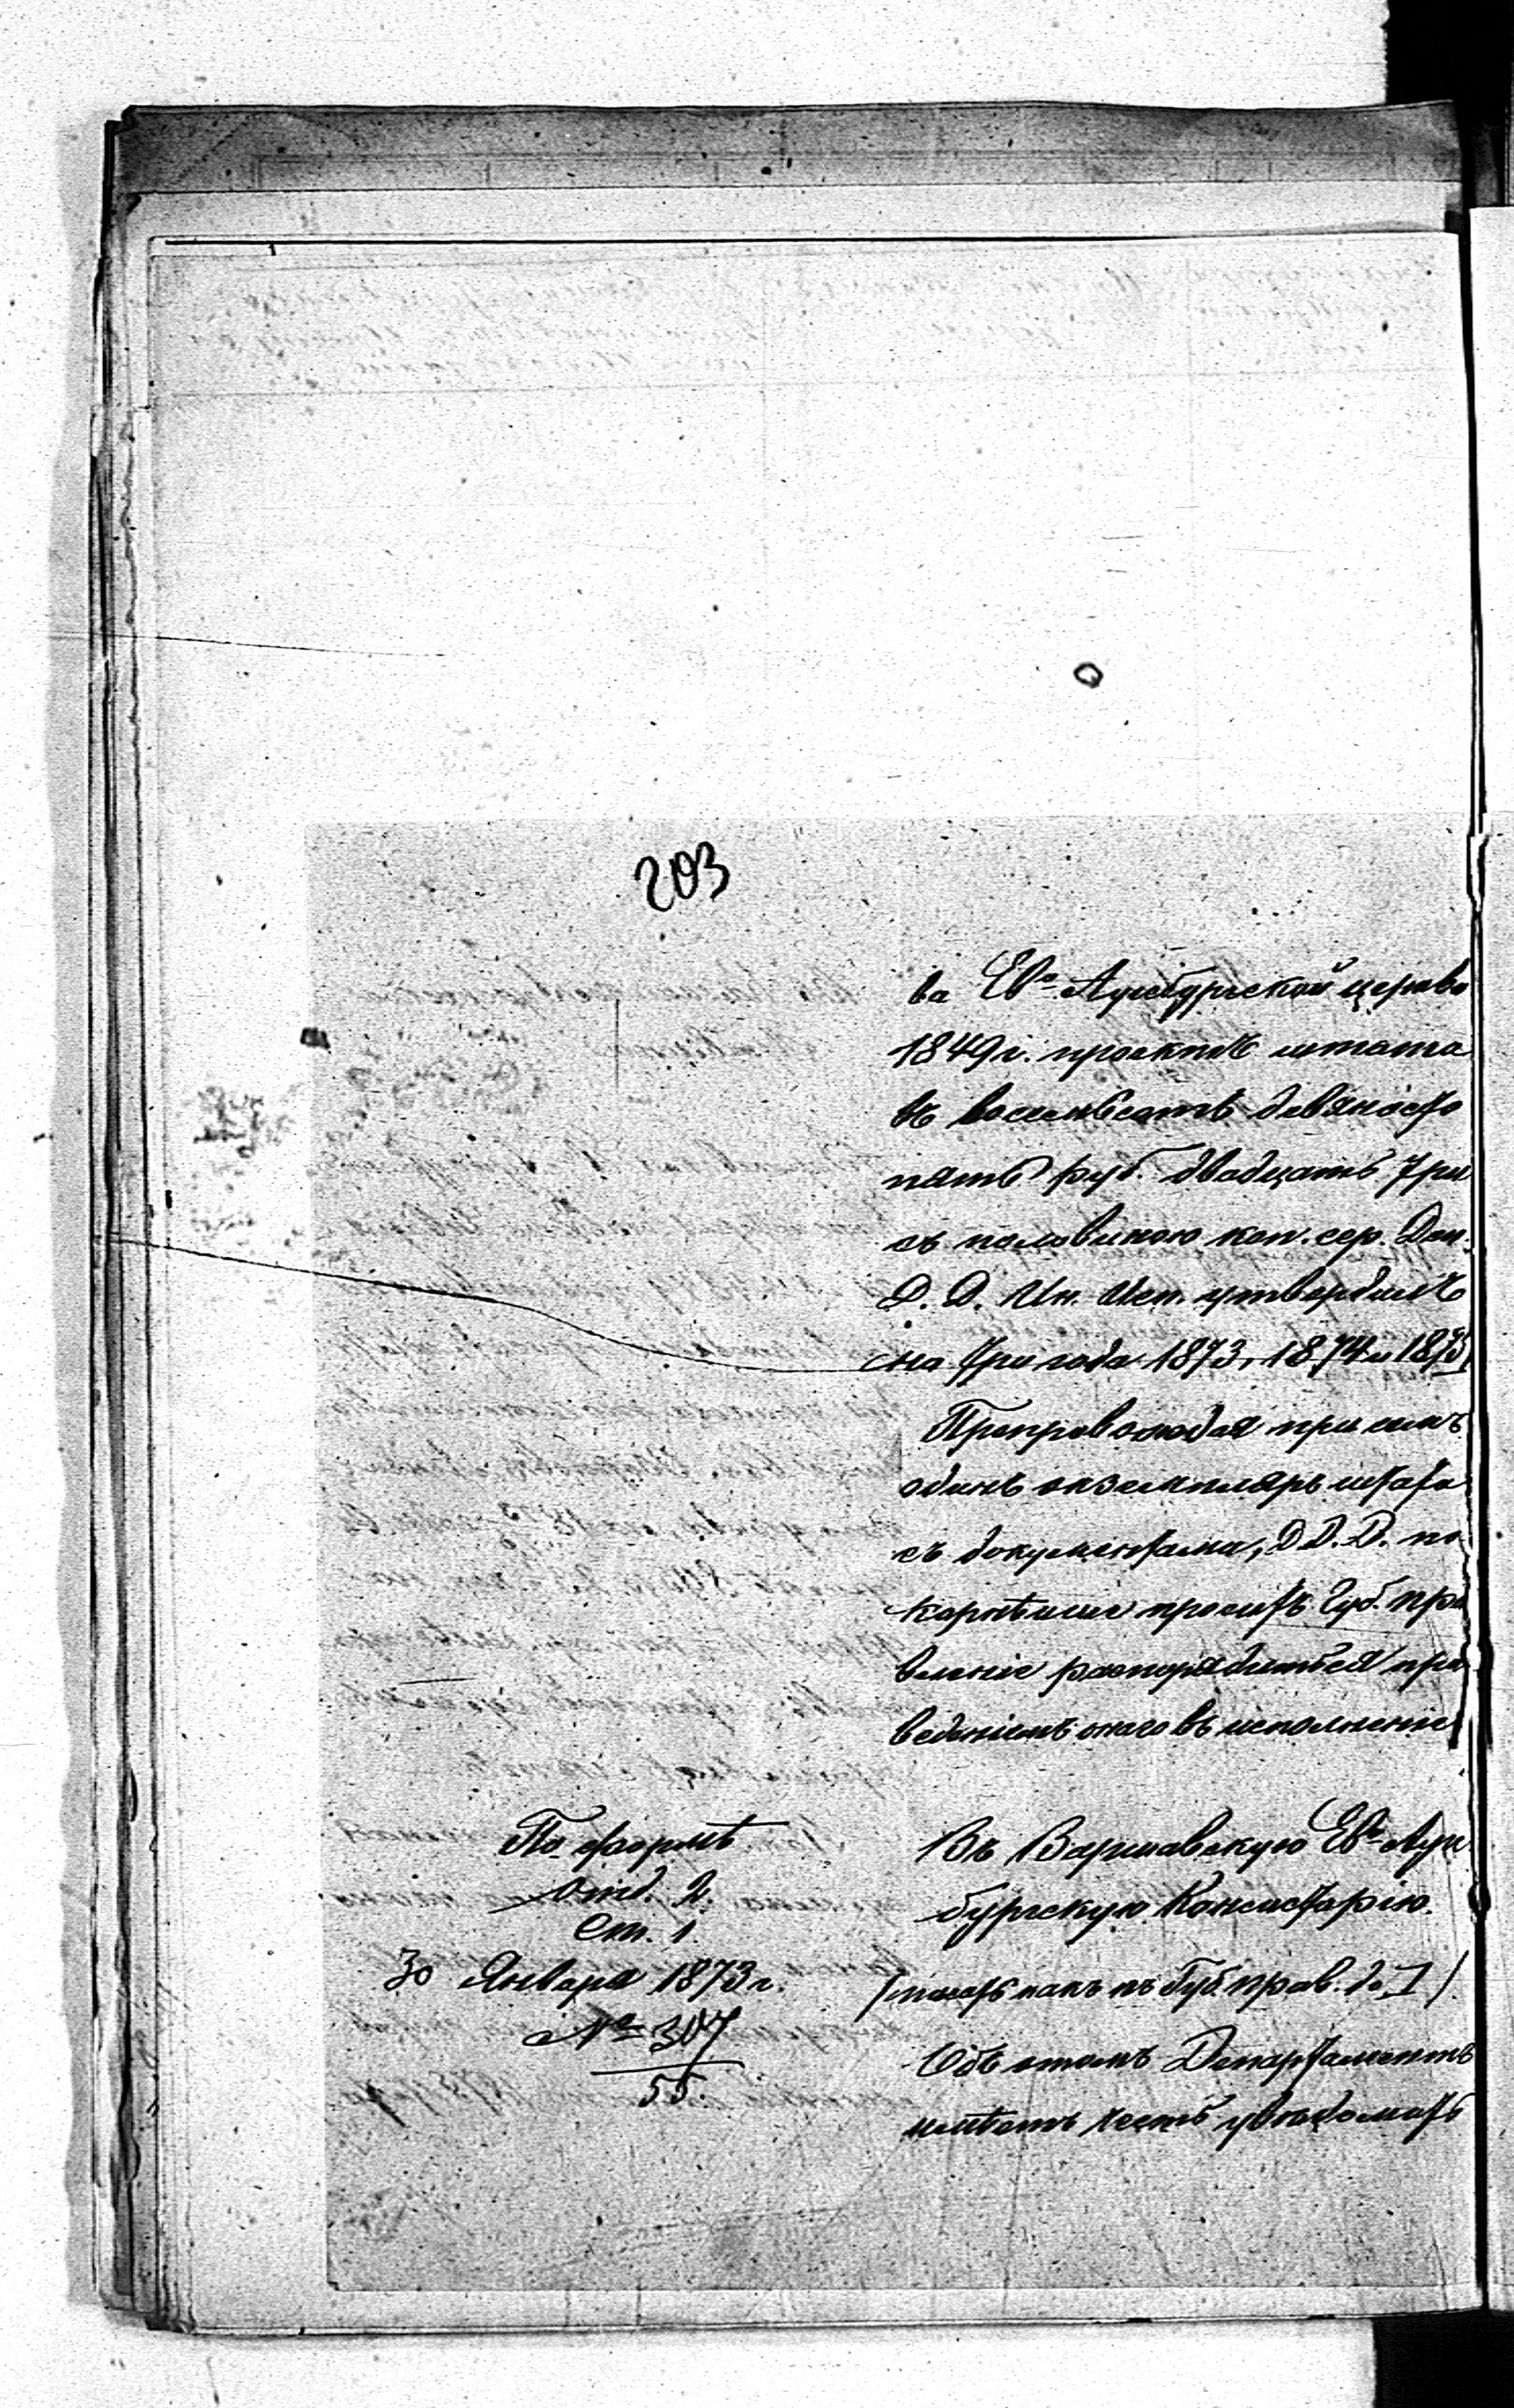 203
ва Ев.-Аугсбургской церкво
1849 г. проектъ штата
въ восемьсотъ девяносто
пять руб. двадцать три
съ половиною коп. сер. Деп.
Д. Д. Ин. Исп. утвердилъ
на три года 1873, 1874 и 1875
Препровождая при семъ
одинъ экземпляръ штата
съ документами, Д. Д. Д. по
корнѣйше проситъ Губ. Пра
вленіе распорядиться при
веденіемъ онаго въ исполненіе
По формѣ
Отд. 2.
Ст. 1.
30 Января 1873 г.
№ 307
55.
Въ Варшавскую Ев.-Аугс
бургскую Консисторію.
(писать какъ въ Губ. прав. до I)
Объ этомъ Департаментъ
имѣетъ честь увѣдомить